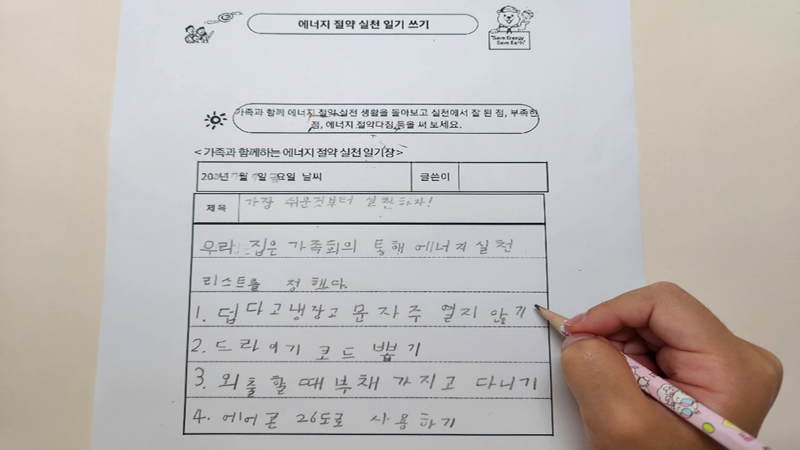 에너지 절약 실천 일기 쓰기
"Save Energy
Save Earth"
가족과 함께 에너지 절약 실천 생활을 돌아보고 실천에서 잘 된 점, 부족한
점, 에너지 절약다짐 등을 써 보세요.
<가족과 함께하는 에너지 절약 실천 일기장>
년 7월 일 요일 날씨 글쓴이
제목 가장 쉬운것부터 실천하자!
우리 집은 가족회의 통해 에너지 실천
리스트를 정했다.
1. 덥다고 냉장고 문 자주 열지 않기
2. 드라이기 코드 뽑기
3. 외출할 때 부채 가지고 다니기
4. 에어콘 26도로 사용하기